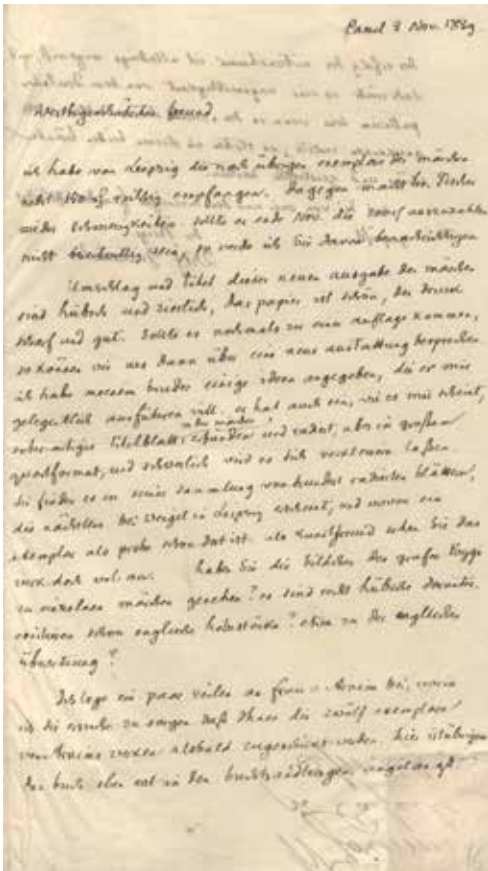 Cassel 2 Nov. 1839
freund
ich habe von Leipzig die noch übrigen exemplare der märchen
richtig empfangen. dagegen macht hr.
wieder schwierigkeiten. sollte er ende Nov. die auszuzahlen
nicht sein, so werde ich Sie davon benachrichtigen
Umschlag und titel dieser neuen ausgabe der märchen
sind hübsch und zierlich, das papier ist schön, der druck
scharf und gut. Sollte es nochmals zu einer auflage kommen,
so können wir uns dann über eine neue austattung besprechen
ich habe meinem bruder einige ideen angegeben, die er mir
gelegentlich ausführen will. er hat auch ein, wie es mir scheint,
titelblatt zu den märchen erfunden und radiert, aber in großem
quartformat, und schwerlich wird es sich verkleinern laßen.
Sie finden es in seiner sammlung von hundert radierten blättern,
die nächstens bei Weigel in Leipzig erscheint, und wovon ein
exemplar als probe schon dort ist. als kunstfreund sehen Sie das
werk doch wol an. haben Sie die bildchen des grafen
zu einzelnen märchen gesehen? es sind recht hübsche darunter.
schon englische holzstöcke? etwa zu der englischen
übersetzung?
Ich lege ein paar zeilen an frau v Arnim bei, worin
ich sie ersuche zu sorgen daß Ihnen die zwölf exemplare
von Arnims werken alsbald zugeschickt werden. hier ist übrigens
das buch eben erst in den buchhandlungen angelangt.